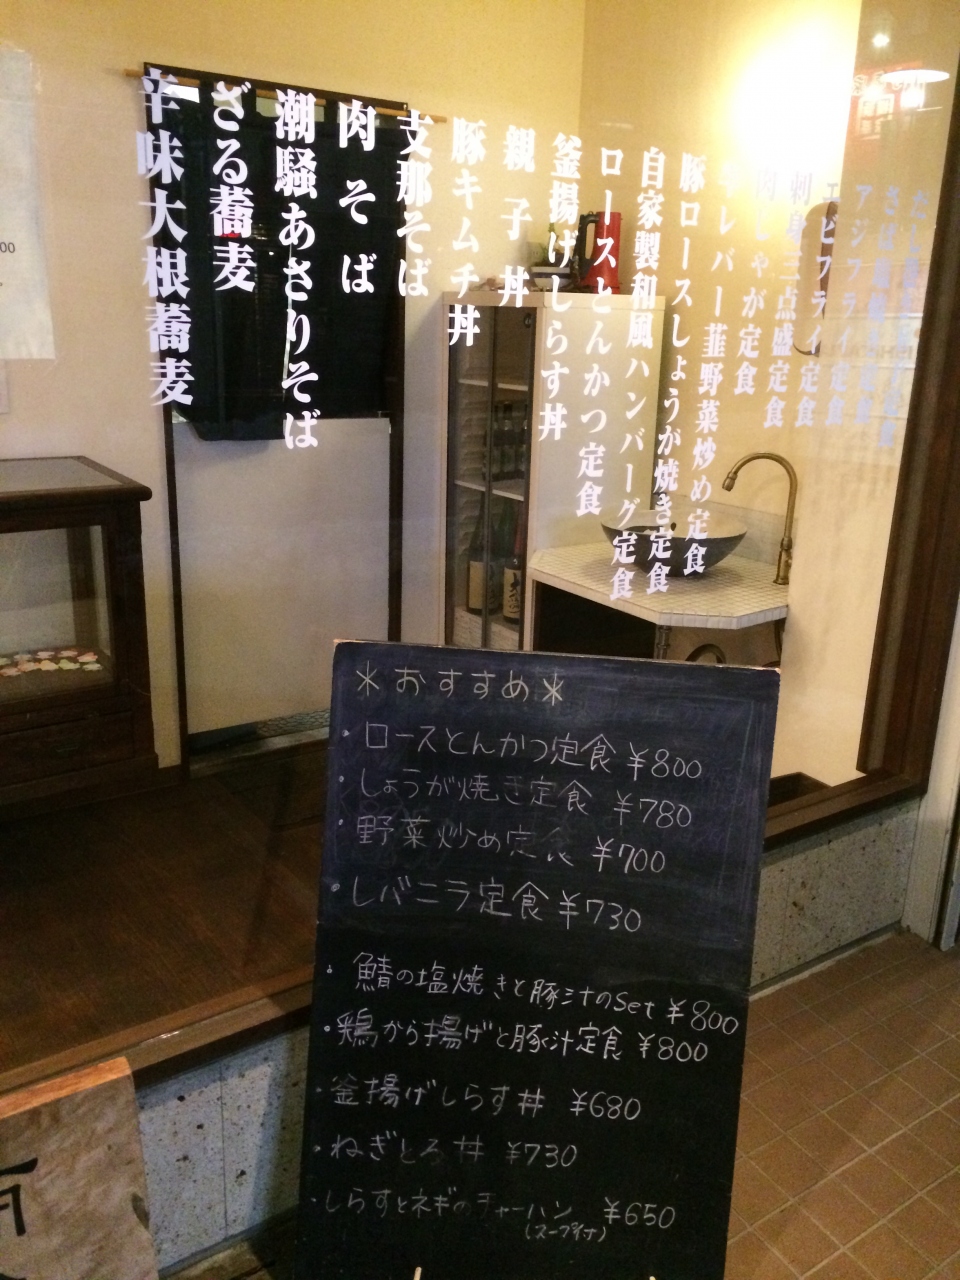 だし
さば
アジフライ定食
エビフライ定食
刺身三点盛定食
肉じゃが定食
レバー韮野菜炒め定食
豚ロースしょうが焼き定食
自家製和風ハンバーグ定食
ロースとんかつ定食
釜揚げしらす丼
親子丼
豚キムチ丼
支那そば
肉そば
潮騒あさりそば
ざる蕎麦
辛味大根蕎麦
00
*おすすめ*
・ロースとんかつ定食 ¥800
・しょうが焼き定食 ¥780
・野菜炒め定食 ¥700
・レバニラ定食 ¥730
・鯖の塩焼きと豚汁のSet ¥800
・鶏から揚げと豚汁定食 ¥800
・釜揚げしらす丼 ¥680
・ねぎとろ丼 ¥730
・しらすとネギのチャーハン ¥650
(スープ付)